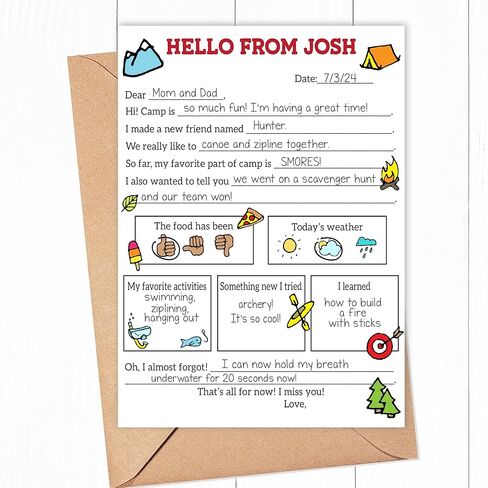 HELLO FROM JOSH
Date: 7/3/24
Dear Mom and Dad,
Hi! Camp is so much fun! I'm having a great time!
I made a new friend named Hunter.
We really like to canoe and zipline together.
So far, my favorite part of camp is SMORES!
I also wanted to tell you we went on a scavenger hunt
and our team won!
The food has been
Today's weather
My favorite activities
swimming,
ziplining,
hanging out
Something new I tried
archery!
It's so cool!
I learned
how to build
a fire
with sticks
Oh, I almost forgot! I can now hold my breath
underwater for 20 seconds now!
That's all for now! I miss you!
Love,